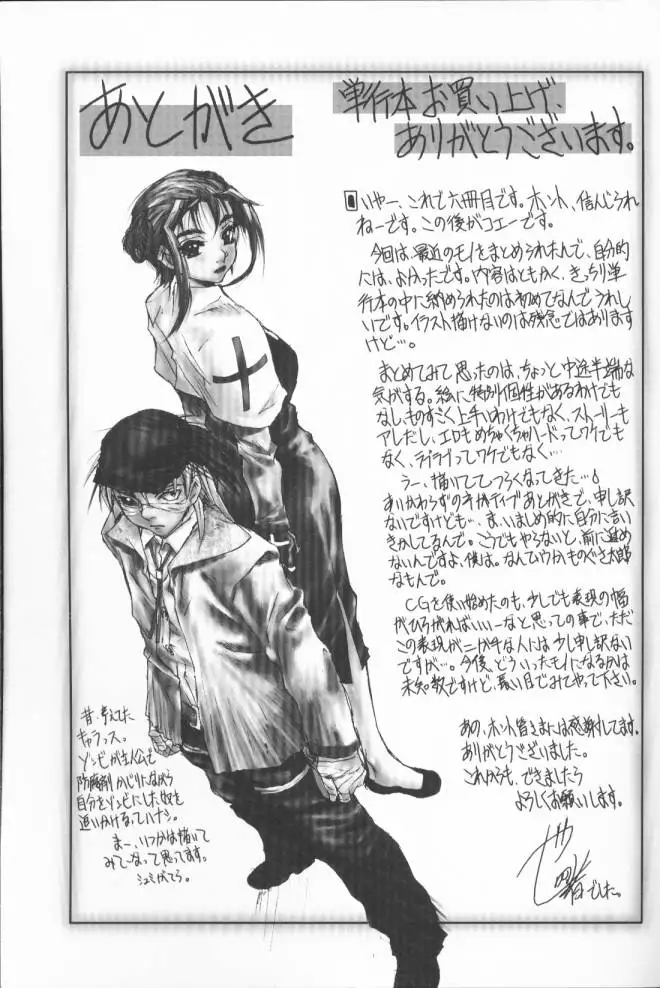 あとがき
単行本お買い上げ、
ありがとうございます。
いやー、これで六冊目です。ホント、信じられ
ねーです。この後がコエーです。
今回は、最近のモノをまとめられたんで、自分的
には、よかったです。内容はともかく、きっちり単
行本の中に納められたのは初めてなんでうれし
いです。イラスト描けないのは残念ではあります
けど…。
まとめてみて思ったのは、ちょっと中途半端な
気がする。絵に特別個性があるわけでも
なし、ものすごく上手いわけでもなく、ストーリーも
アレだし、エロもめちゃくちゃハードってワケでも
なく、ラブラブってワケでもなく…
うー、描いててつらくなってきた…
あいかわらずのネガティブあとがきで、申し訳
ないですけども…ま、いましめ的に自分に言い
きかしてるんで。こうでもやらないと、前に進め
ないんですよ、僕は。なんていうかものぐさ太郎
なもんで。
CGを使い始めたのも、少しでも表現の幅
がひろがればいいーなと思っての事で、ただ
この表現がニガ手な人には少し申し訳ない
ですが…。今後、どういったモノになるかは
未知数ですけど、長い目でみてやって下さい。
あの、ホント皆さまには感謝してます。
ありがとうございました。
これからも、できましたら
よろしくお願いします。
でした。
昔、考えてた
キャラっス。
ゾンビが主人公で
防腐剤かじりながら
自分をゾンビにした奴を
追いかけるっていたら。
まー、いつかは描いて
みてーなって思ってます。
シュミがてら。